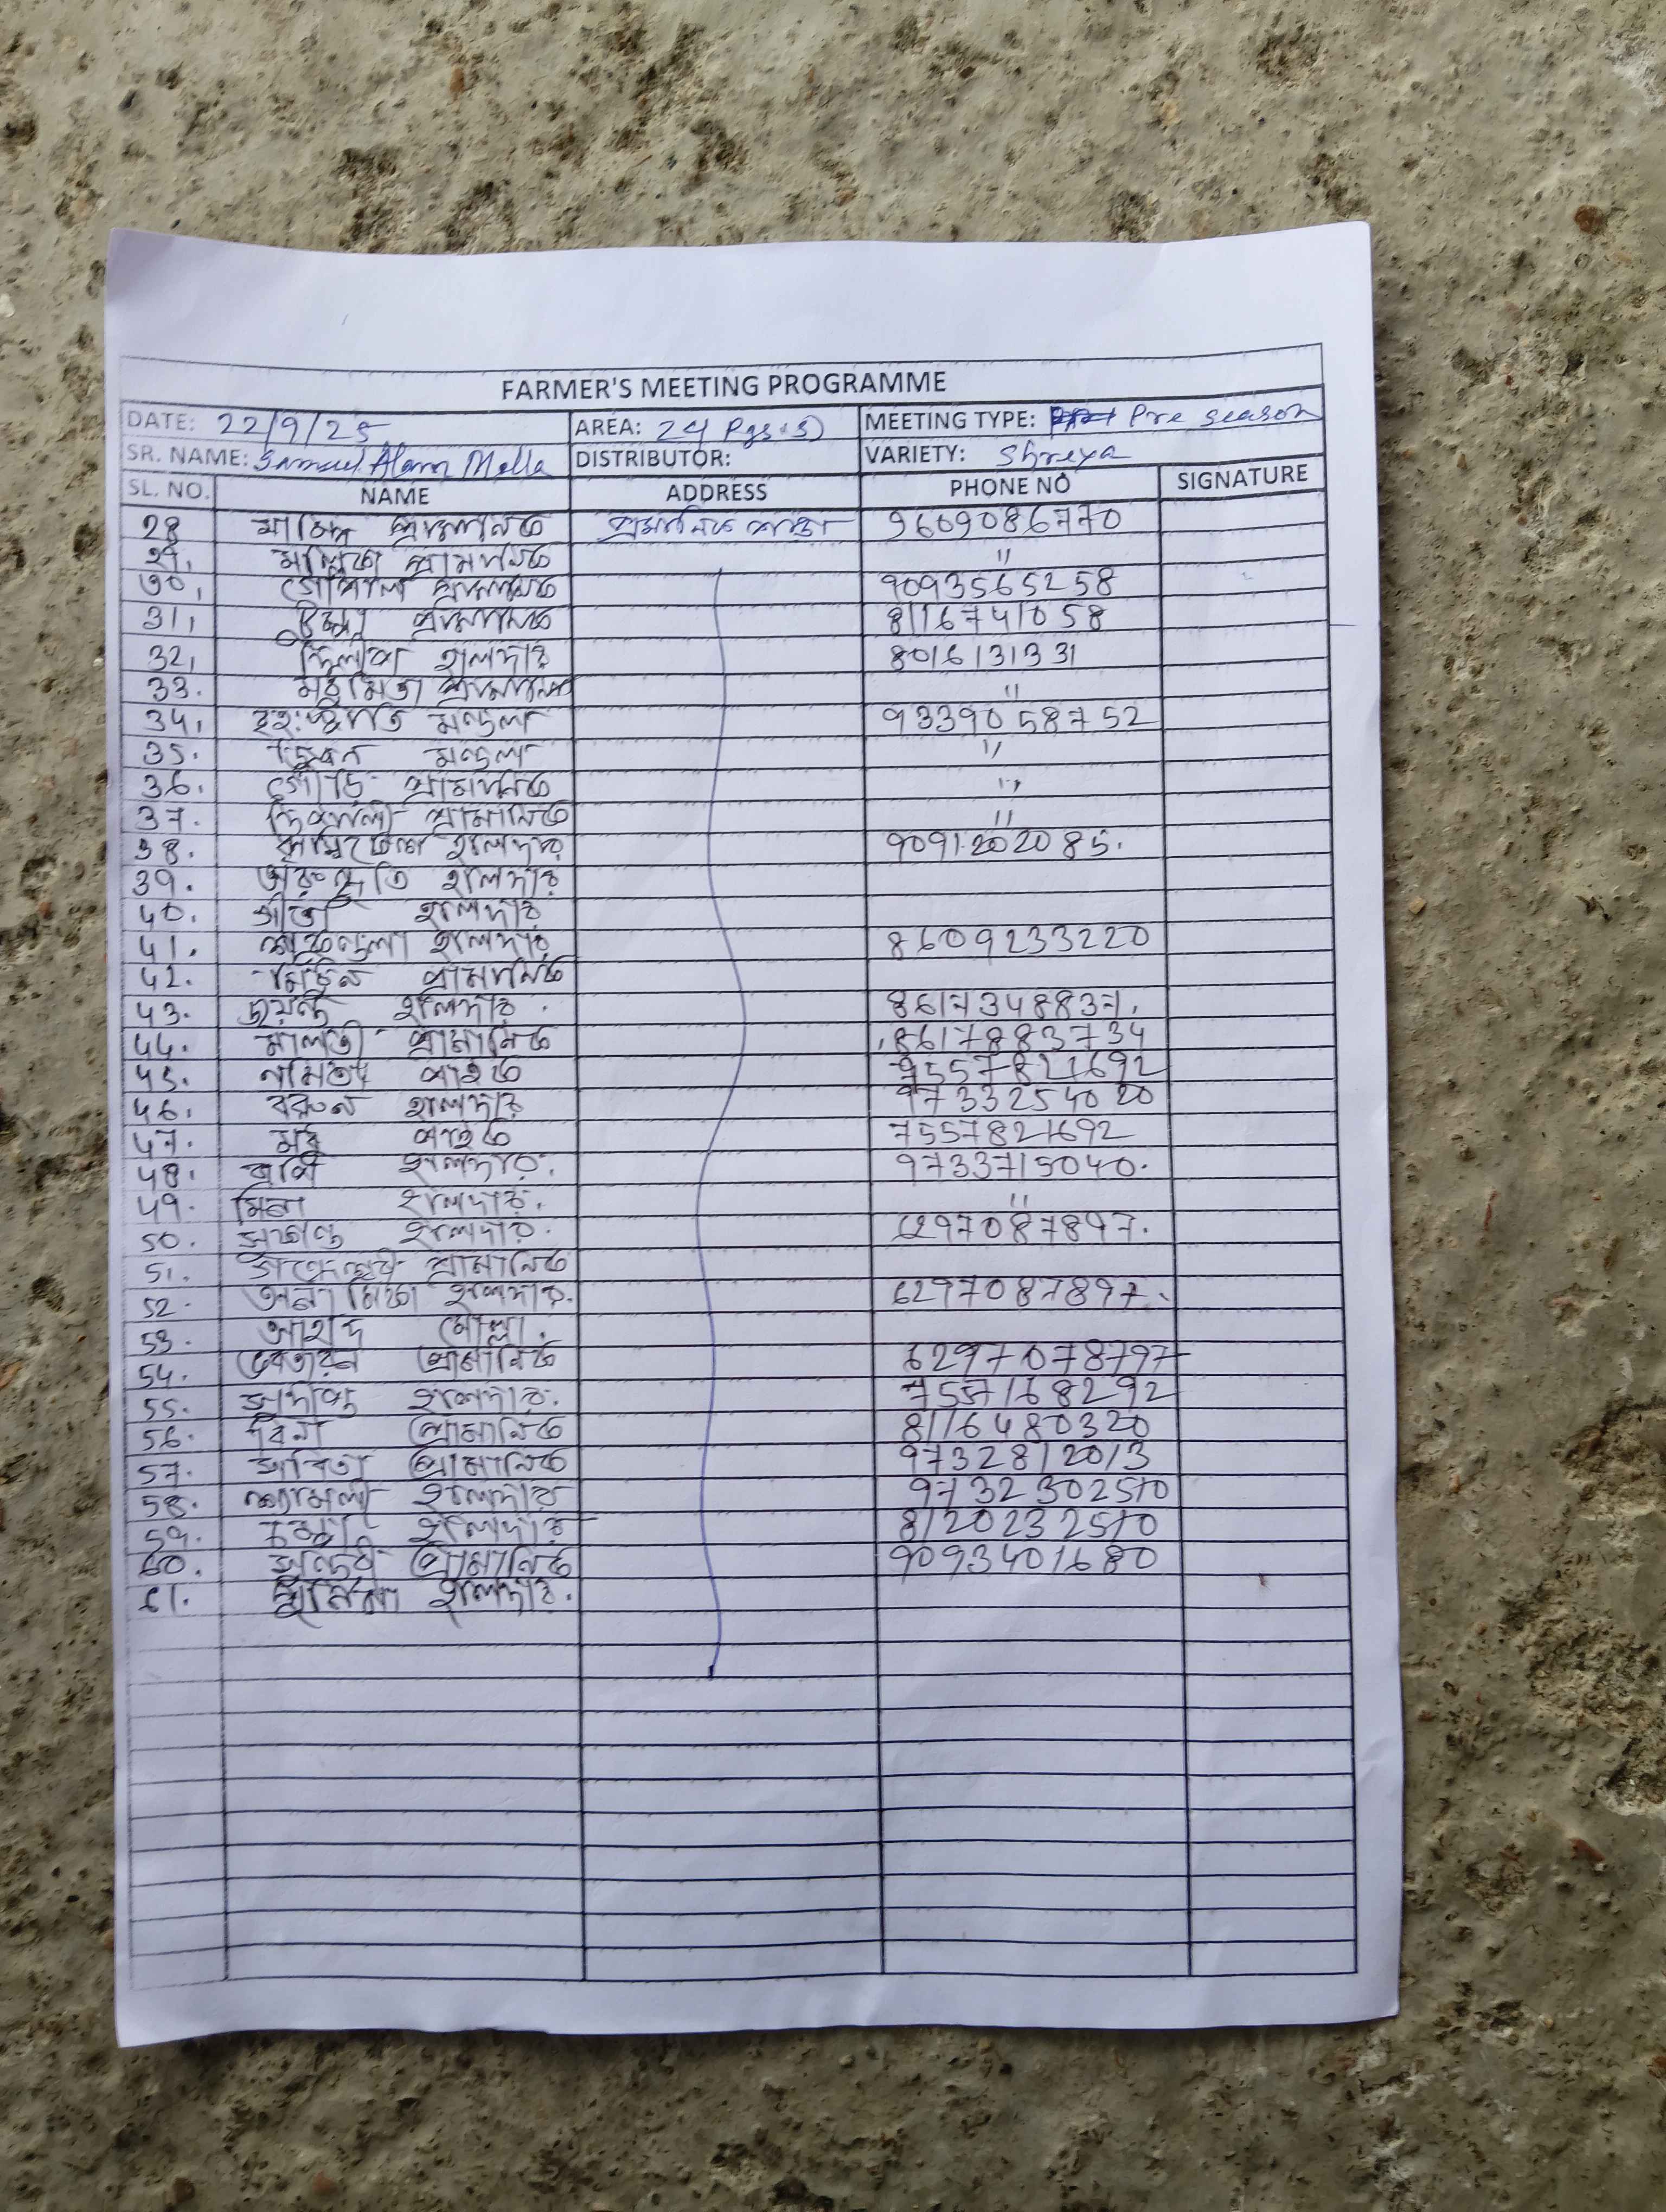 FARMER'S MEETING PROGRAMME
DATE: 22/9/25 AREA: 24 Pgs (S) MEETING TYPE: Pre season
SR. NAME: Samsul Alam Molla DISTRIBUTOR: VARIETY: Shreya
SL. NO. NAME ADDRESS PHONE NO SIGNATURE
28 প্রামানিক প্রমানিক পাড়া 9609086770
২৯. মল্লিকা প্রামানিক "
৩০, গোপাল প্রামানিক 9093565258
31, প্রামানিক 8116741058
32, দিলীপ হালদার 8016131331
33. মধুমিতা প্রামানিক "
34. মন্ডল 9339058752
35. জিবন মন্ডল "
36. গৌড়ি প্রামানিক "
37. দিপালী প্রামানিক "
38. হালদার 9091202085.
39. অরুন্ধুতি হালদার
40. গীতা হালদার
41. শকুন্তলা হালদার 8609233220
42. মিঠুন প্রামানিক
43. জয়ন্ত হালদার. 8617348837.
44. মালতী প্রামানিক 8617883734
45. নমিতা পাইক 7557821692
46. বরুন হালদার 9733254020
47. মধু পাইক 7557821692
48. হালদার. 9733715040.
49. মিনা হালদার. "
50. সুকান্ত হালদার. 6297087897.
51. প্রামানিক
52. অনামিকা হালদার. 6297087897.
53. মোল্লা.
54. প্রামানিক 6297078797
55. হালদার. 7557168292
56. প্রামানিক 8116480320
57. সবিতা প্রামানিক 9732812013
58. শ্যামলী হালদার 9732302510
59. হালদার 8120232510
60. প্রামানিক 9093401680
61. হালদার.